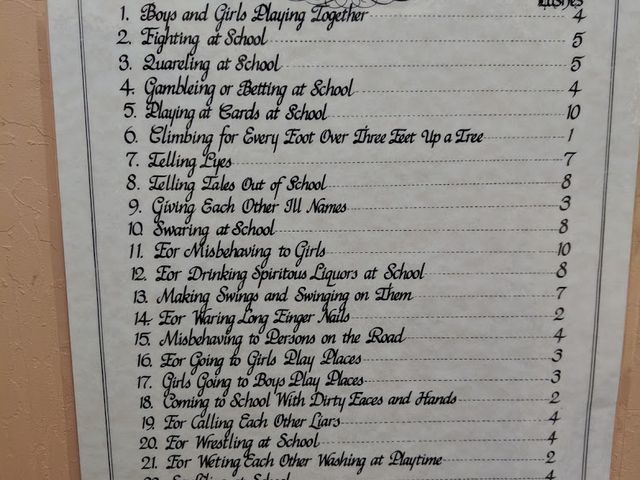 Lashes
1. Boys and Girls Playing Together 4
2. Fighting at School 5
3. Quareling at School 5
4. Gambleing or Betting at School 4
5. Playing at Cards at School 10
6. Climbing for Every Foot Over Three Feet Up a Tree 1
7. Telling Lyes 7
8. Telling Tales Out of School 8
9. Giving Each Other Ill Names 3
10. Swaring at School 8
11. For Misbehaving to Girls 10
12. For Drinking Spiritous Liquors at School 8
13. Making Swings and Swinging on Them 7
14. For Waring Long Finger Nails 2
15. Misbehaving to Persons on the Road 4
16. For Going to Girls Play Places 3
17. Girls Going to Boys Play Places 3
18. Coming to School With Dirty Faces and Hands 2
19. For Calling Each Other Liars 4
20. For Wrestling at School 4
21. For Weting Each Other Washing at Playtime 2
at School 4